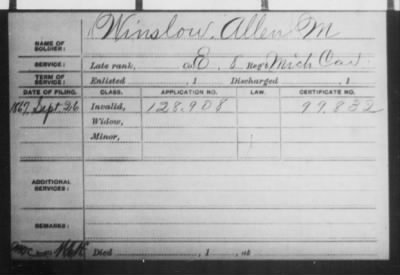 NAME OF SOLDIER: Winslow, Allen M
SERVICE: Late rank, Co. E, 8 Reg't Mich Cav
TERM OF SERVICE: Enlisted , 1 Discharged , 1
DATE OF FILING. CLASS. APPLICATION NO. LAW. CERTIFICATE NO.
1867, Sept. 26 Invalid, 128.908 99.832
Widow,
Minor,
ADDITIONAL SERVICES:
REMARKS:
Died , 1 , at